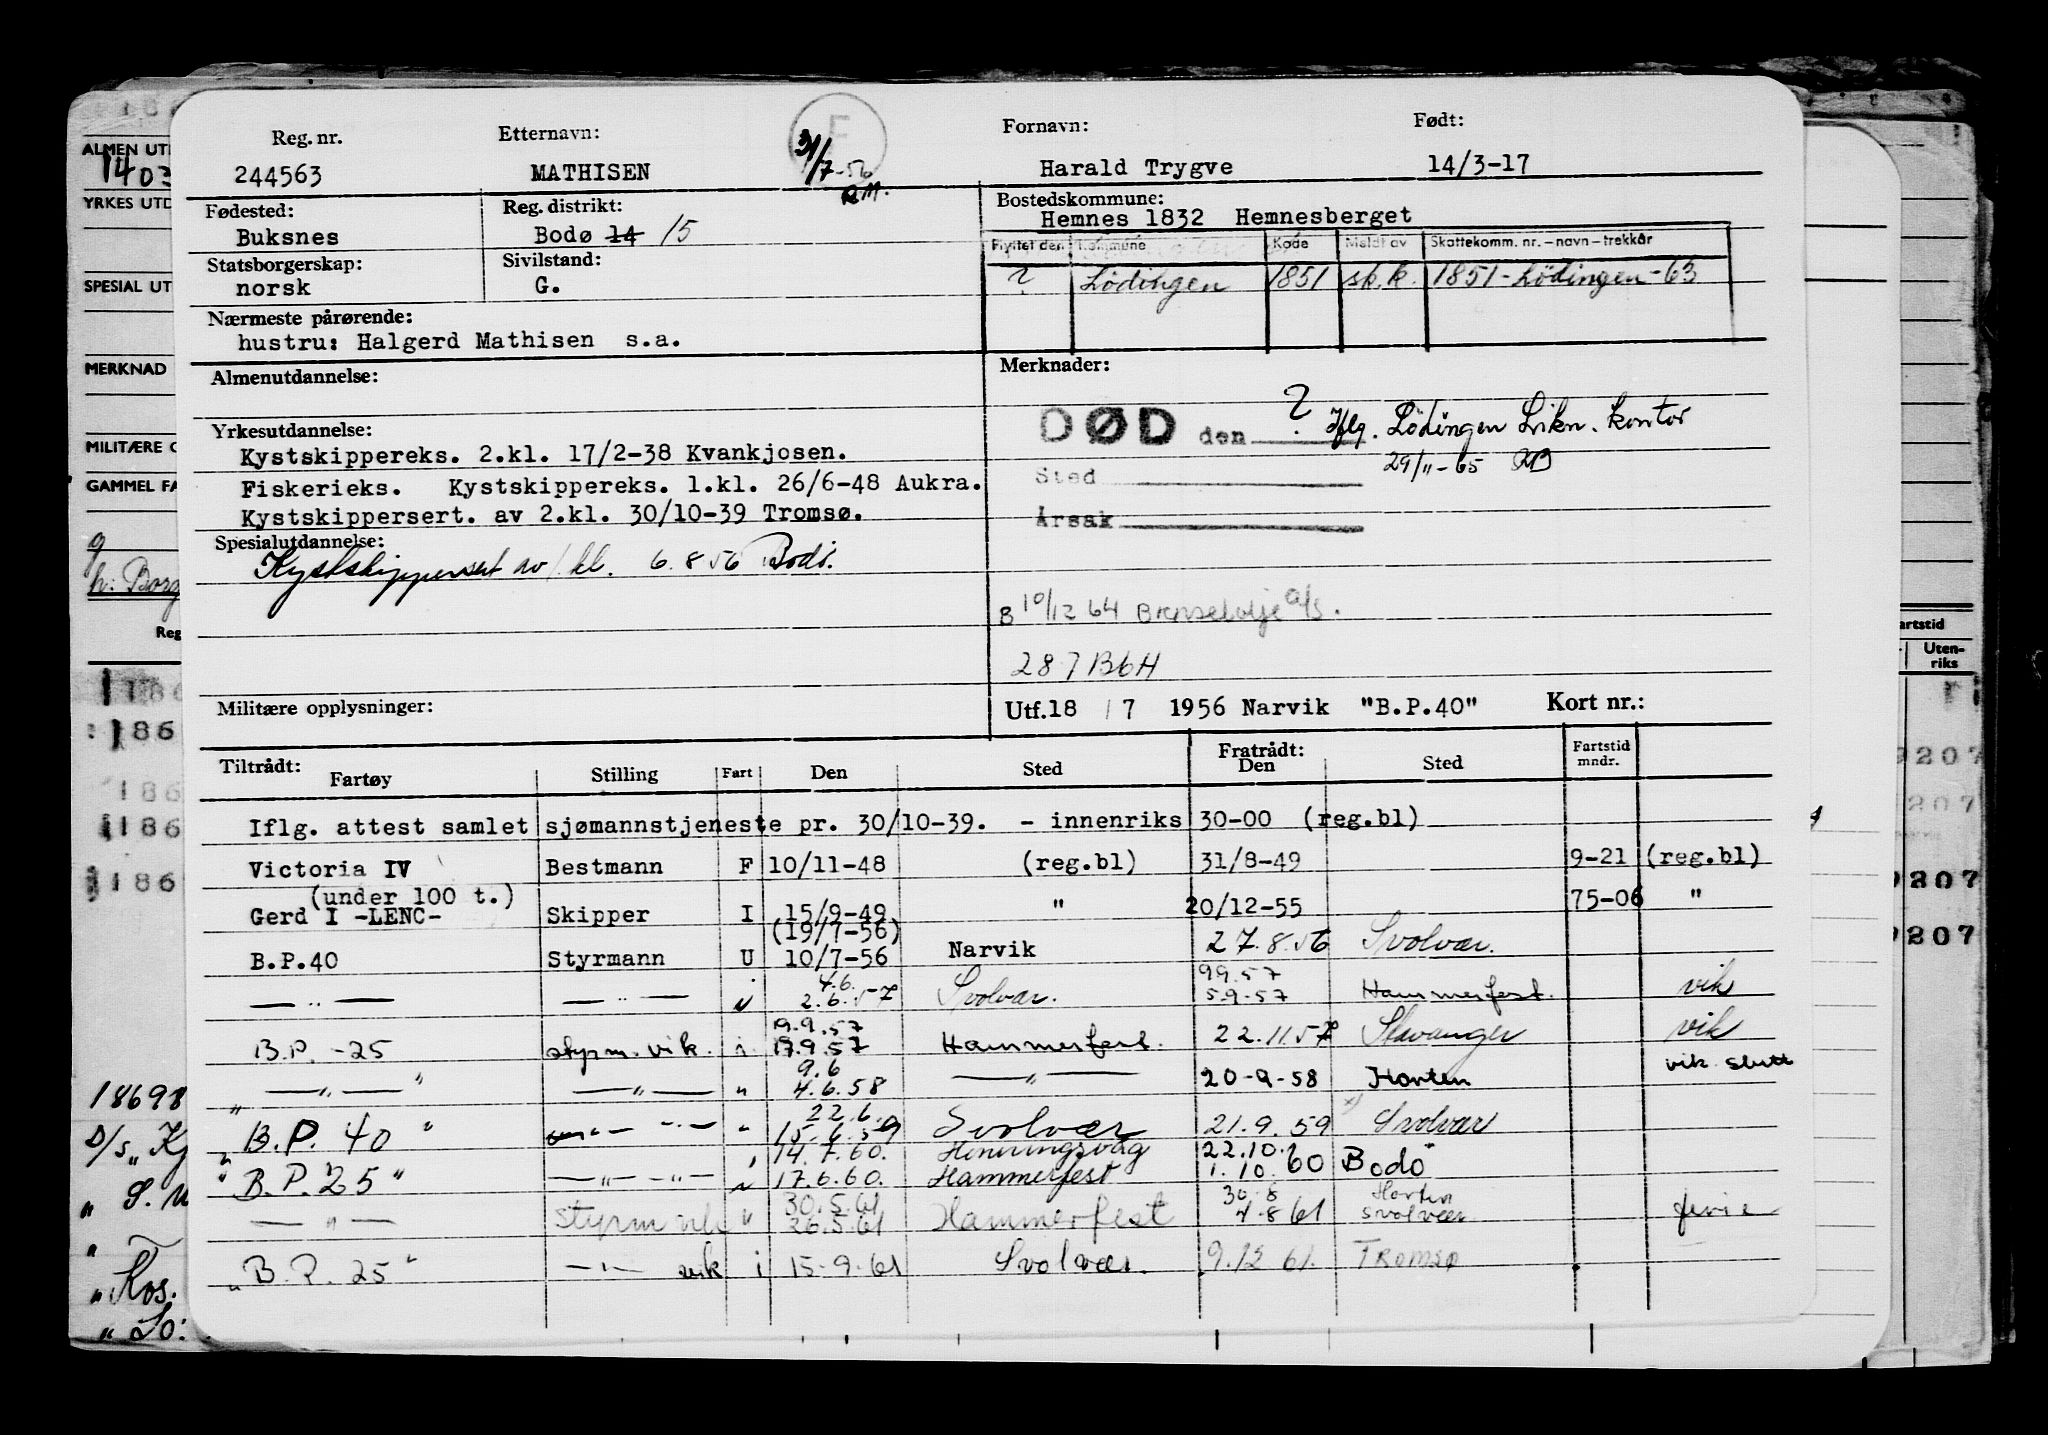 Reg. nr. Etternavn: Fornavn: Født:
244563 MATHISEN 31/7-56 Harald Trygve 14/3-17
Fødested: Reg. distrikt: Bostedskommune:
Buksnes Bodø 14 15 Hemnes 1832 Hemnesberget
Statsborgerskap: Sivilstand: Flyttet den Kommune Kode Meldt av Skattekomm. nr. – navn – trekkår
norsk G. ? Lödingen 1851 sk.k. 1851 - Lödingen - 63
Nærmeste pårørende:
hustru: Halgerd Mathisen s.a.
Almenutdannelse: Merknader:
DØD den ? Iflg. Lödingen Likn. kontor
29/11-65
Sted
Årsak
Yrkesutdannelse:
Kystskippereks. 2.kl. 17/2-38 Kvankjosen.
Fiskerieks. Kystskippereks. 1.kl. 26/6-48 Aukra.
Kystskippersert. av 2.kl. 30/10-39 Tromsø.
Spesialutdannelse:
Kystskippersert av 1 kl. 6.8.56 Bodø.
B 10/12 64 Brenselolje A/S.
287 B6H
Militære opplysninger: Utf. 18 / 7 1956 Narvik "B.P.40" Kort nr.:
Tiltrådt: Fratrådt:
Fartøy Stilling Fart Den Sted Den Sted Fartstid mndr.
Iflg. attest samlet sjømannstjeneste pr. 30/10-39. - innenriks 30-00 (reg.bl)
Victoria IV Bestmann F 10/11-48 (reg.bl) 31/8-49 9-21 (reg.bl)
(under 100 t.)
Gerd I -LENC- Skipper I 15/9-49 " 20/12-55 75-06 "
(19/7-56)
B.P.40 Styrmann U 10/7-56 Narvik 27.8.56 Svolvær.
4.6. 9.9.57
— " — — " — i 2.6.57 Svolvær. 5.9-57 Hammerfest. vik
19.9.57
B.P. -25 styrm. vik. i 17.9.57 Hammerfest. 22.11.57 Stavanger vik
9.6
" — " — " — " — " 4.6.58 — " — 20-9-58 Horten vik slutt
22.6.
" B.P. 40 " — " — " 15.6.59 Svolvær 21.9.59 Svolvær
14.7.60. Honningsvåg 22.10.
" B.P. 25 " — " — " — 17.6.60. Hammerfest 1.10.60 Bodö
30.5.61 30.8 Horten
— " — Styrm vik " 26.5.61 Hammerfest 4.8 61 Svolvær ferie
" B.P. 25 " — " — vik i 15.9.61 Svolvær. 9.12 61. Tromsø
ALMEN UT
1403
YRKES UTD
SPESIAL UT
MERKNAD
MILITÆRE O
GAMMEL FA
g
h: Borg
Reg
186
186
186
186
186
18698
D/s „ Kj
„ Kos.
„ Lo:
artstid
Uten-
riks
9207
9207
9207
9207